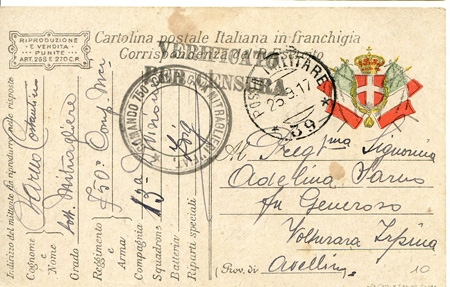 RIPRODUZIONE
E VENDITA
PUNITE
ART. 268 E 270 C.P.
Cartolina postale Italiana in franchigia
Corrispondenza del R. Esercito
VERIFICATO
PER CENSURA
POSTA MILITARE
25.9.17
* 69 *
COMANDO 750ª MITRAGLIATRICI
Indirizzo del mittente da riprodursi nelle risposte
Cognome
e
Nome
Costantino
Grado Sott. Mitragliere
Reggimento
e
Arma
750ª Comp. Mit
Compagnia
Squadrone
Batteria
13ª Divisione
Riparti speciali
All Pregma Signorina
Adelina Sarno
fu Generoso
Volturara Irpina
(Prov. di Avellino
10